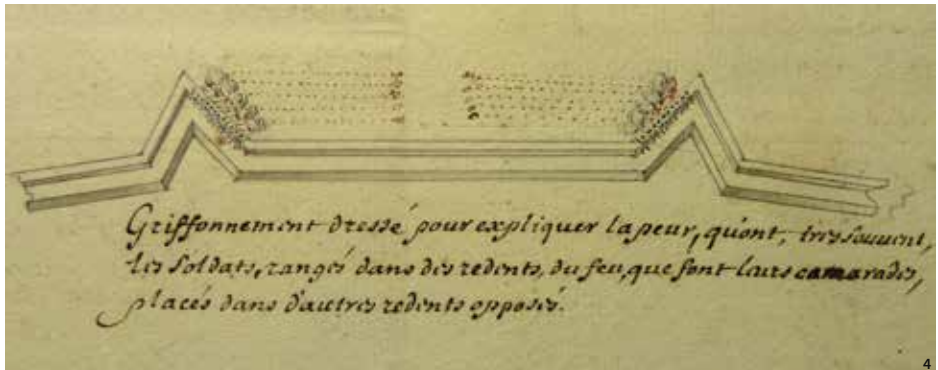 Griffonnement dressé pour expliquer la peur, qu'ont, tres souvent,
les soldats, rangés dans des redents, du feu, que font leurs camarades,
placés dans d'autres redents opposés.
4